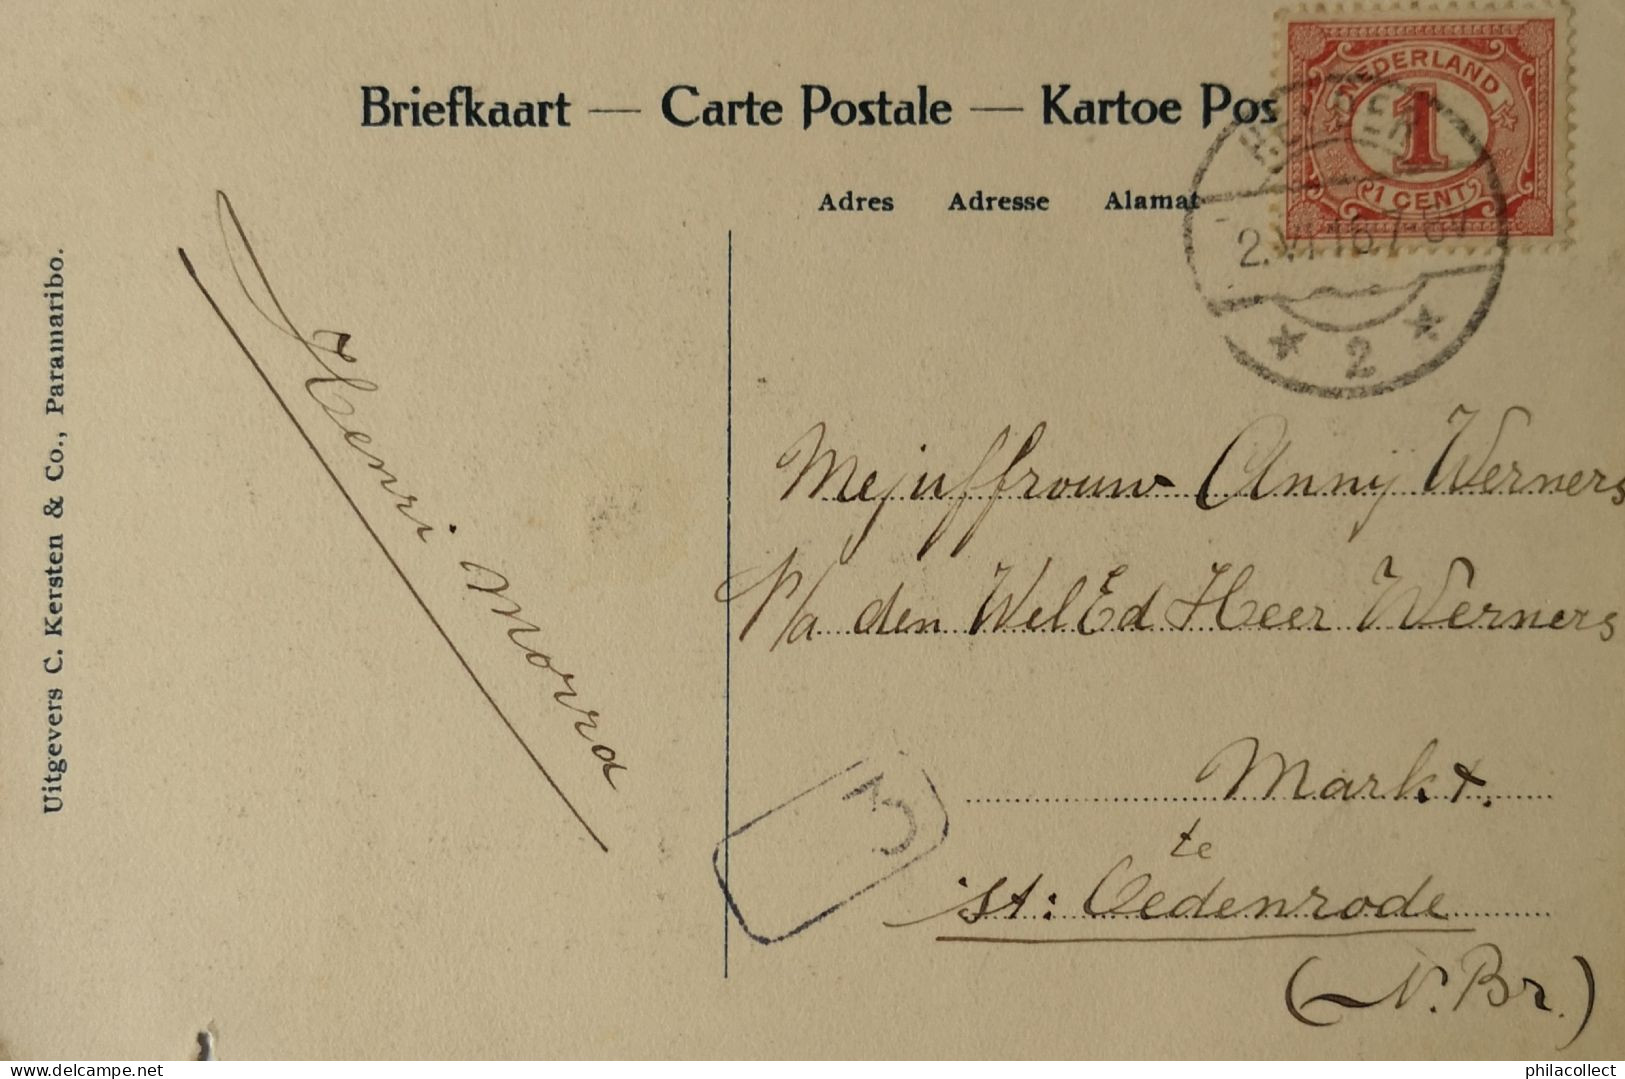 Briefkaart — Carte Postale — Kartoe Pos
Adres Adresse Alamat
NEDERLAND
1
1 CENT
HELDER
2.VI.16.7-8V
2
Uitgevers C. Kersten & Co., Paramaribo.
Henri Morra
Mejuffrouw Anny Werners
P/a den WelEd Heer Werners
Markt.
te
St: Oedenrode
(N.Br.)
3
delcampe.net
philacollect